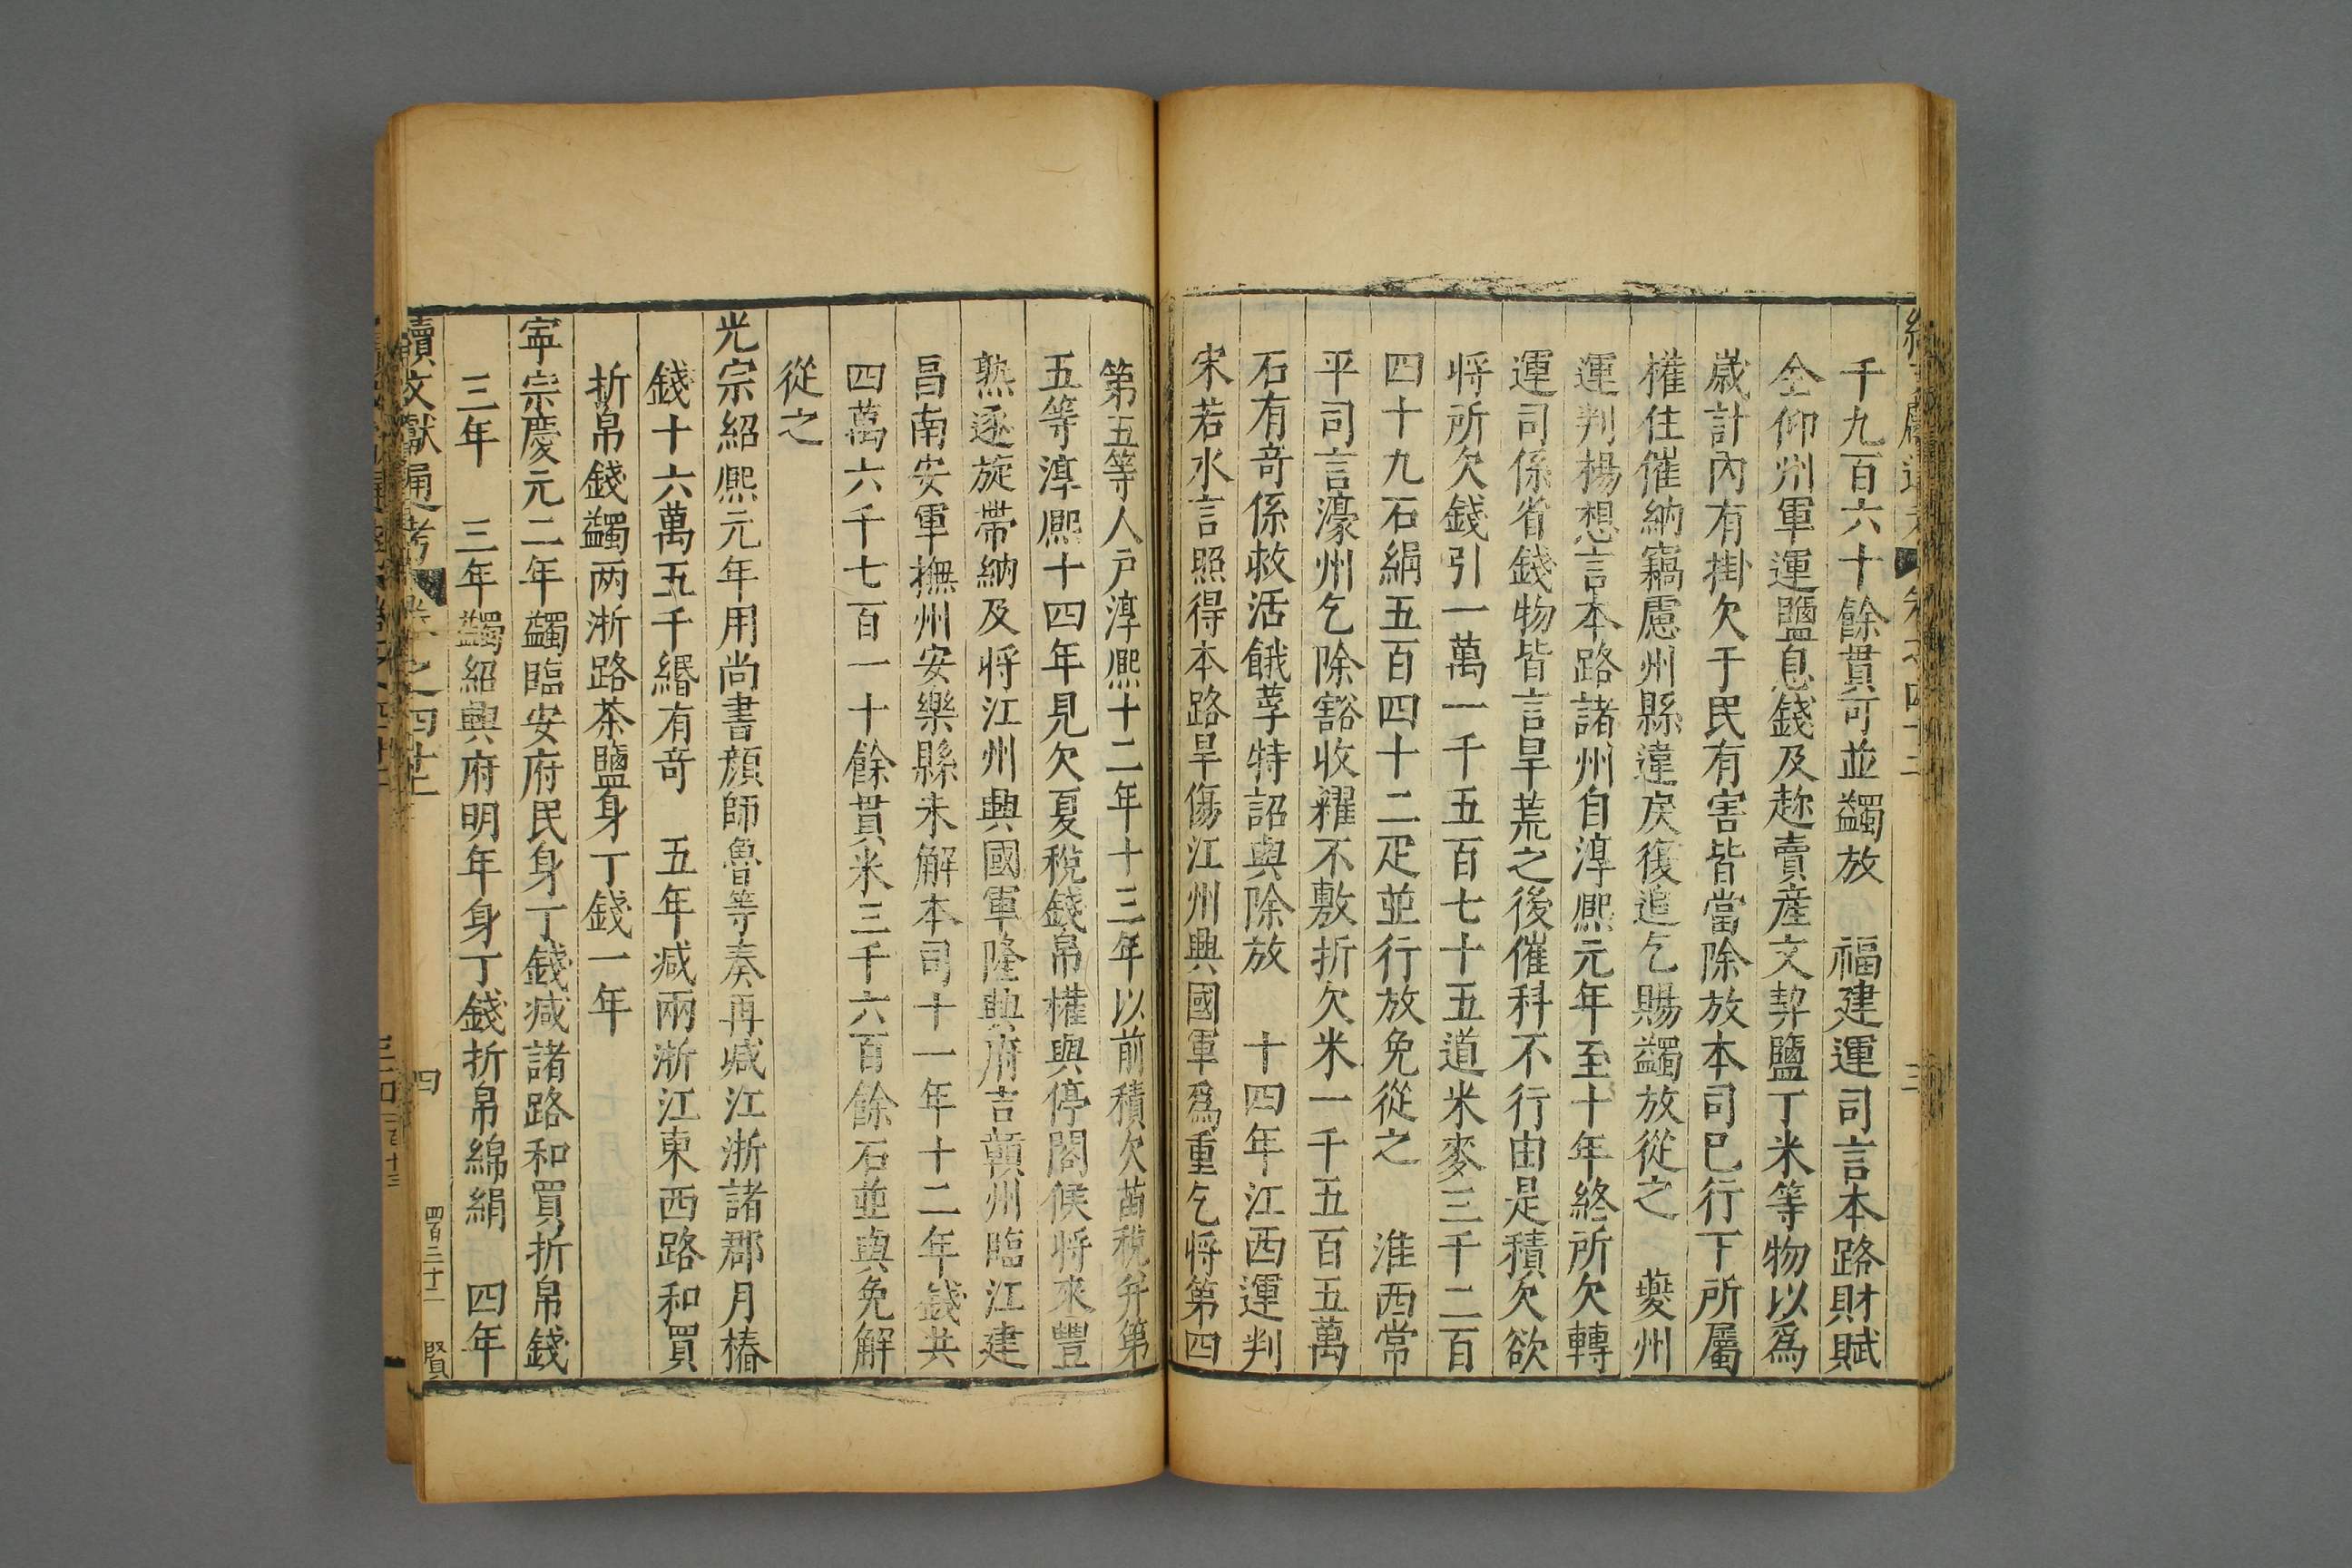 千九百六十餘貫可並蠲放　福建運司言本路財賦
全仰州軍運鹽息錢及趂賣產文契鹽丁米等物以爲
歲計內有掛欠于民有害皆當除放本司已行下所屬
權住催納竊慮州縣違戾復追乞賜蠲放從之　夔州
運判楊想言本路諸州自淳熈元年至十年終所欠轉
運司係省錢物皆言旱荒之後催科不行由是積欠欲
将所欠錢引一萬一千五百七十五道米麥三千二百
四十九石絹五百四十二疋並行放免從之　淮西常
平司言濠州乞除豁收糴不敷折欠米一千五百五萬
石有奇係救活餓莩特詔與除放　十四年江西運判
宋若水言照得本路旱傷江州興國軍爲重乞将第四
第五等人戸淳熈十二年十三年以前積欠苗稅并第
五等淳熈十四年見欠夏稅錢帛權與停閣候将來豐
熟逐旋帶納及将江州興國軍隆興府吉贛州臨江建
昌南安軍撫州安樂縣未解本司十一年十二年錢共
四萬六千七百一十餘貫米三千六百餘石並與免解
從之
光宗紹熈元年用尚書顔師魯等奏再减江浙諸郡月樁
錢十六萬五千緡有奇　五年减兩浙江東西路和買
折帛錢蠲两浙路茶鹽身丁錢一年
寜宗慶元二年蠲臨安府民身丁錢减諸路和買折帛錢
三年　三年蠲紹興府明年身丁錢折帛綿絹　四年
續文獻通考　卷之四十二　四　四百二十二　賢